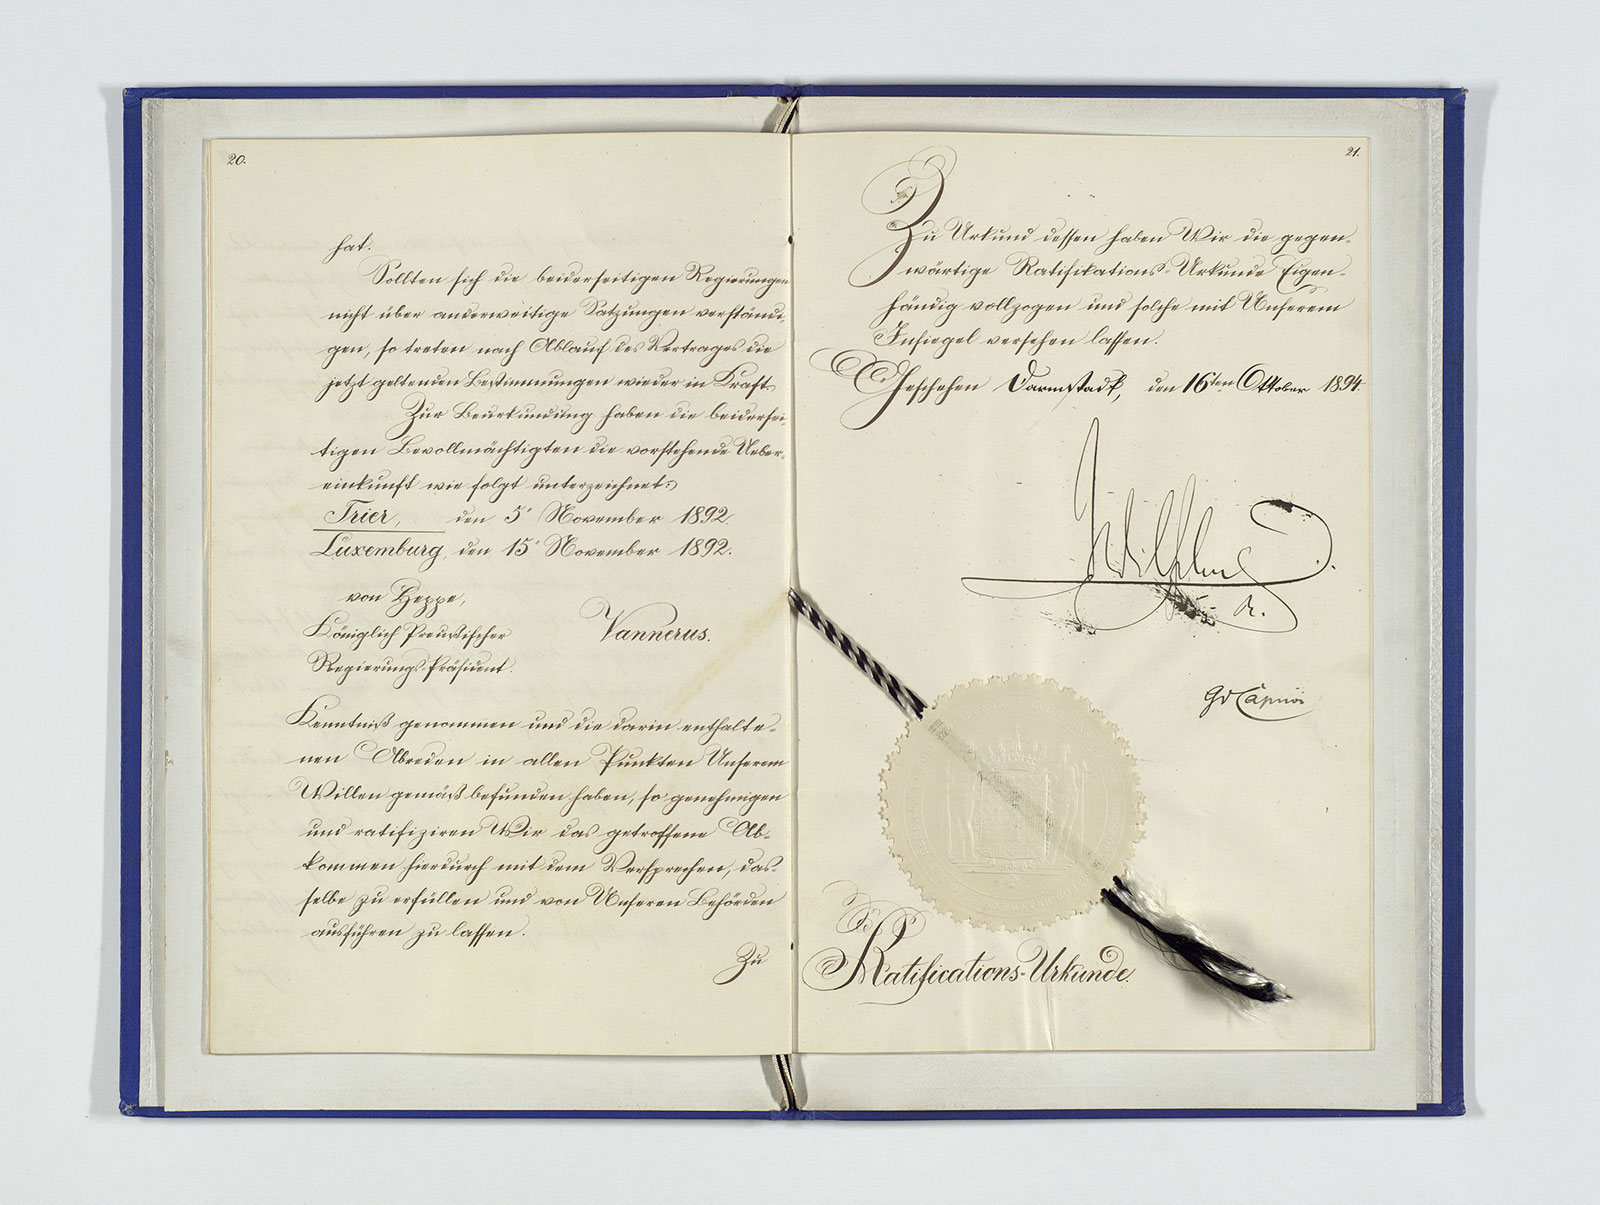 20.
hat.
Sollten sich die beiderseitigen Regierungen
nicht über anderweitige Satzungen verständi-
gen, so treten nach Ablauf des Vertrages die
jetzt geltenden Bestimmungen wieder in Kraft.
Zur Beurkundung haben die beidersei-
tigen Bevollmächtigten die vorstehende Ueber-
einkunft wie folgt unterzeichnet:
Trier, den 5. November 1892.
Luxemburg, den 15. November 1892.
von Heppe,
Königlich Preußischer
Regierungs-Präsident.
Vannerus.
Kenntniß genommen und die darin enthalte-
nen Abreden in allen Punkten Unserem
Willen gemäß befunden haben, so genehmigen
und ratifiziren Wir das getroffene Ab-
kommen hierdurch mit dem Versprechen, das-
selbe zu erfüllen und von Unseren Behörden
ausführen zu lassen.
Zu
21.
Zu Urkund dessen haben Wir die gegen-
wärtige Ratifikations-Urkunde Eigen-
händig vollzogen und solche mit Unserem
Insiegel versehen lassen.
Geschehen Darmstadt, den 16ten Oktober 1894.
Wilhelm
R.
GvCaprivi
Ratifications-Urkunde.